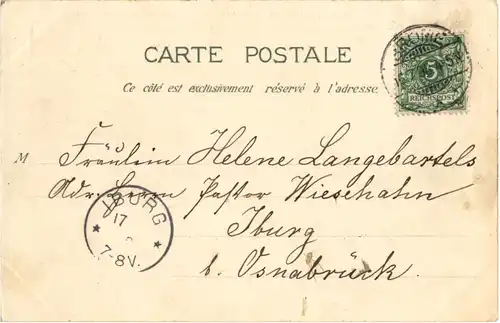 CARTE POSTALE
Ce côté est exclusivement réservé à l'adresse
5
REICHSPOST
M Fräulein Helene Langebartels
Adr. Herrn Pastor Wiesehahn
Iburg
b. Osnabrück.
IBURG
17
7-8V.